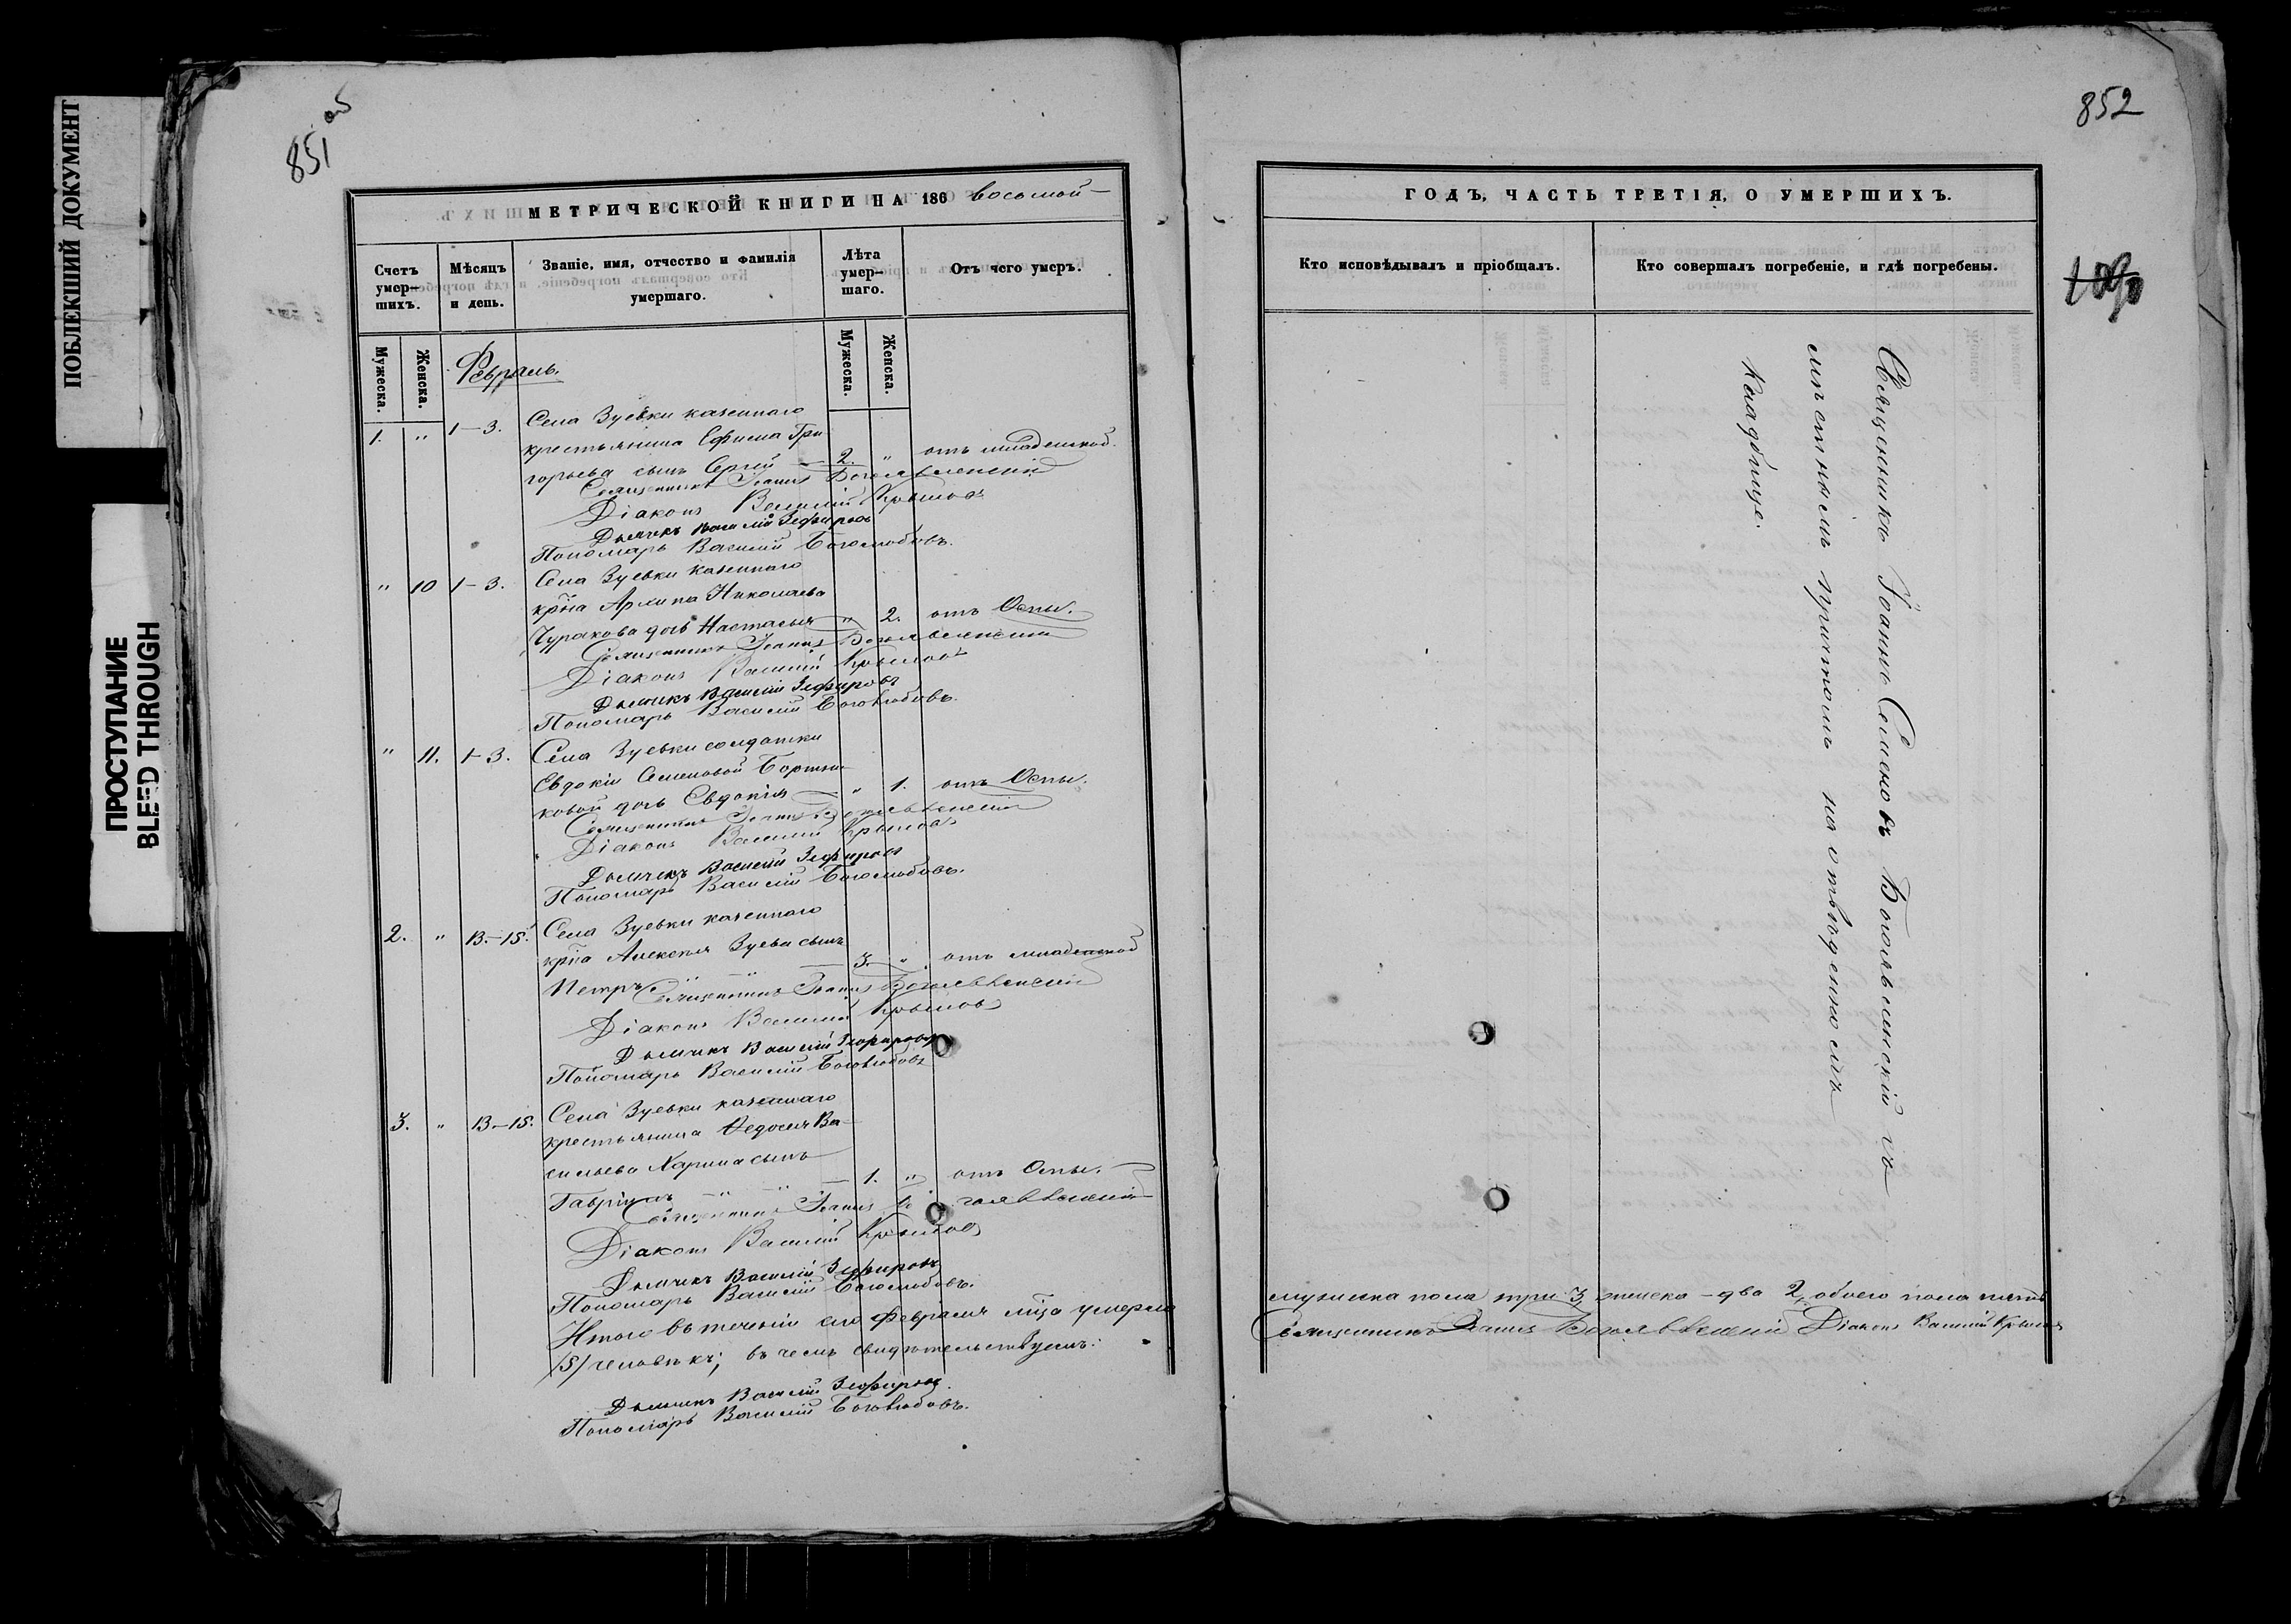 ПОБЛЕКШИЙ ДОКУМЕНТ
ПРОСТУПАНИЕ
BLEED THROUGH
851 об
МЕТРИЧЕСКОЙ КНИГИ НА 186 восьмой
Счетъ умер-шихъ.
Мѣсяцъ и день.
Званіе, имя, отчество и фамилія умершаго.
Лѣта умер-шаго.
Отъ чего умеръ.
Мужеска.
Женска.
Мужеска.
Женска.
Февраль.
1. " 1-3. Села Зуевки казеннаго
крестьянина Ефима Гри
горьева сынъ Сергій 2. " отъ младенской.
Священникъ Іоаннъ Боголѣвленскій
Діаконъ Василій Крыловъ
Дьячекъ Василій Зефировъ
Пономарь Василій Боголюбовъ.
" 10 1-3. Села Зуевки казеннаго
кр҃на Архипа Николаева
Чуракова дочь Настасья " 2. отъ Оспы.
Священникъ Іоаннъ Боголѣвленскій
Діаконъ Василій Крыловъ
Дьячекъ Василій Зефировъ
Пономарь Василій Боголюбовъ.
" 11. 1-3. Села Зуевки солдатки
Евдокіи Семеновой Бортни
ковой дочь Евдокія " 1. отъ Оспы.
Священникъ Іоаннъ Боголѣвленскій
Діаконъ Василій Крыловъ
Дьячекъ Василій Зефировъ
Пономарь Василій Боголюбовъ.
2. " 13.-15. Села Зуевки казеннаго
кр҃на Алексѣя Зуева сынъ
Петръ 3. " отъ младенской
Священникъ Іоаннъ Боголѣвленскій
Діаконъ Василій Крыловъ
Дьячекъ Василій Зефировъ
Пономарь Василій Боголюбовъ
3. " 13.-15. Села Зуевки казеннаго
крестьянина Ѳедосія Ва-
сильева сынъ
Гавріилъ 1. " отъ Оспы.
Священникъ Іоаннъ Боголѣвленскій
Діаконъ Василій Крыловъ
Дьячекъ Василій Зефировъ
Пономарь Василій Боголюбовъ.
Итого въ теченіи сего Февраля мѣ҃ца умерло
/5/ человѣкъ; въ чемъ свидѣтельствуемъ:
Дьячекъ Василій Зефировъ.
Пономарь Василій Боголюбовъ.
852
ГОДЪ, ЧАСТЬ ТРЕТІЯ, О УМЕРШИХЪ.
Кто исповѣдывалъ и пріобщалъ.
Кто совершалъ погребеніе, и гдѣ погребены.
Священникъ Іоаннъ Семеновъ Боголѣвленскій съ
мѣстнымъ причтомъ на отведенномъ
кладбище.
мужеска пола три 3, женска - два 2, обоего пола пять
Священникъ Іоаннъ Боголѣвленскій Діаконъ Василій Крыловъ